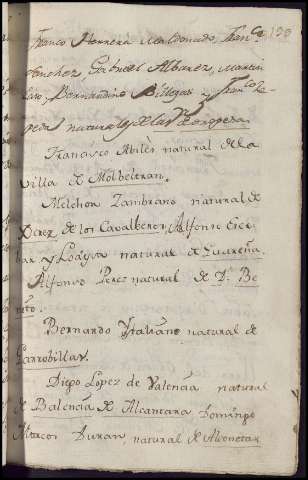 130
Franco Herrera Maldonado, Franco
Sanchez, Gabriel Albarez, Martin
Caro, Bernardino Billegas y Franco Ze
peda naturales de la Oropesa.
Francisco Abiles natural de la
Villa de Molbeltran.
Melchor Zambrano natural de
Xerez de los Cavalleros, Alfonso Esco
bar y Loaysa natural de Zuareña.
Alfonso Perez natural de Dn. Be
nito.
Bernardo Ytaliano natural de
Garrobillas.
Diego Lopez de Valencia natural
de Balencia de Alcantara Domingo
Marcos Duran, natural de Alconetar